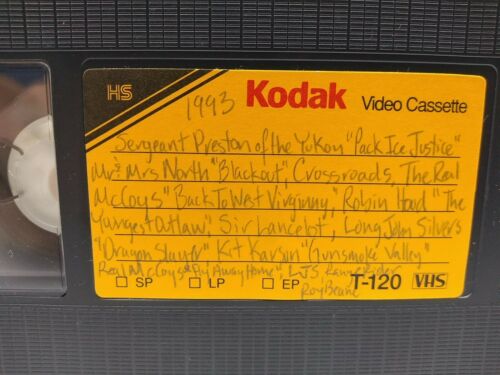 HS
1993 Kodak Video Cassette
Sergeant Preston of the Yukon "Pack Ice Justice"
Mr & Mrs North "Blackout", Crossroads, The Real
McCoys "Back To West Virginny," Robin Hood "The
Youngest Outlaw," Sir Lancelot, Long John Silvers
"Dragon Slayer," Kit Karson "Gunsmoke Valley"
Real McCoys " Away Home", LJS
Roy Beane
SP LP EP T-120 VHS